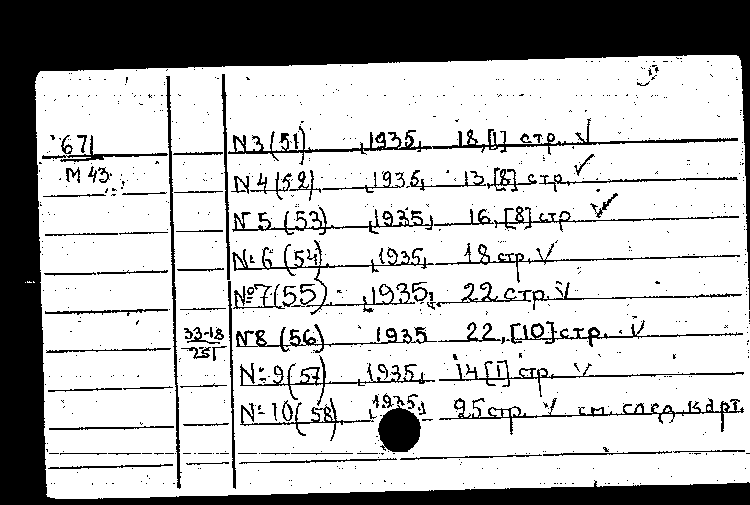 671 N3 (51). [1935] 18,[1] стр. V
М 43 N4 (52) [1935] 13,[8] стр. V
N 5 (53) [1935] 16, [8] стр V
№ 6 (54). [1935] 18 стр. V
№7(55). [1935]. 22 стр. V
33-18/251 №8 (56) 1935 22, [10] стр. V
№ 9(57) [1935] 14 [1] стр. V
№ 10(58). [1935] 25 стр. V см. след. карт.